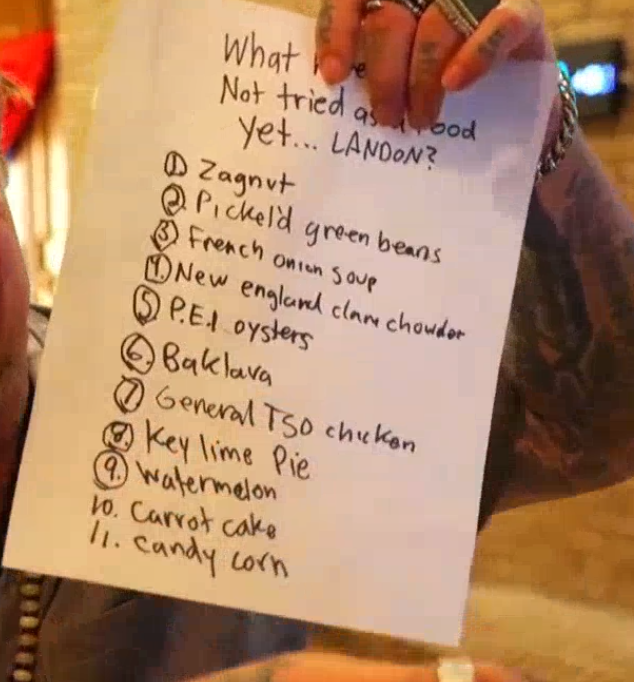 What
Not tried as ood
Yet... LANDON?
① Zagnut
② Pickel'd green beans
③ French onion soup
④ New england clam chowder
⑤ P.E.I oysters
⑥ Baklava
⑦ General TSO chicken
⑧ Key lime Pie
⑨ Watermelon
10. Carrot cake
11. Candy corn